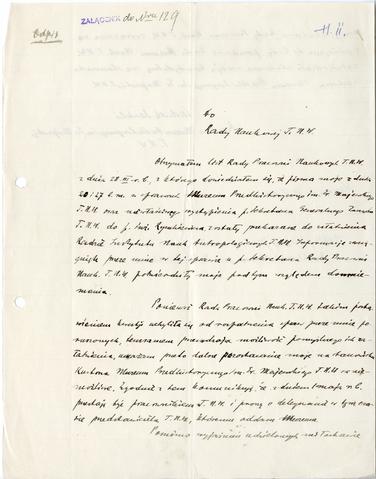 Odpis
ZAŁĄCZNIK do Nru 129
H. II.
Do
Rady Naukowej T.N.W.
Otrzymałem list Rady Pracowni Naukowych T.N.W.
z dnia 28 III r. b., z którego dowiedziałem się, że pisma moje z dnia
20 i 27 b. m. w sprawach Muzeum Przedhistorycznego im. Er. Majewskiego
T.N.W. oraz niewłaściwego wystąpienia p. Sekretarza Generalnego Zarządu
T.N.W. do p. inż. zostały przekazane do załatwienia
Radzie Instytutu Nauk Antropologicznych T.N.W. Informacje zasięgnięte
przeze mnie w tej sprawie u p. Sekretarza Rady Pracowni
Nauk. T.N.W. potwierdziły moje pod tym względem domniemania.
Ponieważ Rada Pracowni Nauk. T.N.W. takim postawieniem
kwestji uchyliła się od rozpatrzenia spraw przeze mnie poruszonych,
tem samem przesądzając możliwość pomyślnego ich załatwienia,
uważam przeto dalsze pozostawanie moje na stanowisku
Kustosza Muzeum Przedhistorycznego im. Er. Majewskiego T.N.W. za niemożliwe.
Zgodnie z tem komunikuję, że z dniem 1 maja r. b.
przestaję być pracownikiem T.N.W. i proszę o delegowanie w tym czasie
przedstawiciela T.N.W., któremu oddam Muzeum.
Pomimo wyjaśnień udzielonych mi